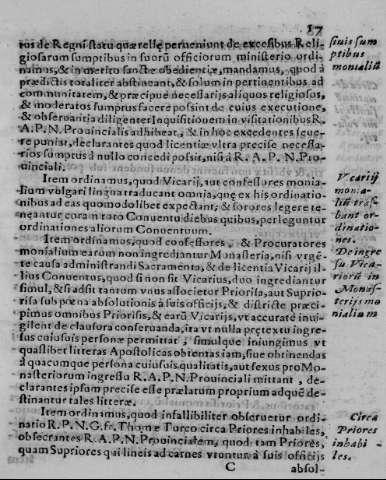 37
ros de Regni statu quærellę perueniunt de excessibus Reli
giosarum sumptibus in suorū officiorum ministerio ordi
namus, & in merito sanctæ obedientiæ, mandamus, quod à
prædictis totaliter abstineant, & solum in pertinentibus ad
communitatem, & præcipuè necessarijs aliquos religiosos,
& moderatos sumptus facere possint de cuius executione,
& obseruantia diligenter Inquisitionem in visitationibus R.
A. P. N. Prouincialis adhibeat, & in hoc excedentes seue-
re puniat, declarantes quod licentiæ vltra precise necessa-
rios sumptus à nullo concedi possit, nisi à R. A. P. N. Pro
uinciali.
Item ordinamus, quod Vicarij, aut confessores monia-
lium vulgari lingua traducant omnia, que ex his ordinatio-
nibus ad eas quomodolibet expectant, & forores legere te-
neantur coram toto Conuentu diebus quibus, perleguntur
ordinationes aliorum Conuentuum.
Item ordinamus, quod confessores, & Procuratores
monialium earum non ingrediantur Monasteria, nisi vrgē-
te causa administrandi Sacramenta, & de licentia Vicarij il-
lius Conuentus, quod si non sit Vicarius, duo ingrediantur
simul, & si adsit tantum vnus associetur Priorisa, aut Suprio-
risa sub pœna absolutionis à suis officijs, & districte præci-
pimus omnibus Priorisis, & earū Vicarijs, vt accuratè inui-
gilent de clausura conseruanda, ita vt nulla prętextu ingre-
sus cuiusuis personæ permittat, simulque iniungimus vt
quaslibet litteras Apostolicas obtentas iam, siue obtinendas
à quacumque persona cuiusuis qualitatis, aut sexus pro Mo-
nasteriorum ingressu R. A. P. N. Prouinciali mittant, de-
clarantes ipsum precise esse prælatum proprium adquē de-
stinantur tales litteræ.
Item ordinamus, quod infallibiliter obseruetur ordi-
natio R. P. N. G. fr. Thomæ Turco circa Priores inhabiles,
obsecrantes R. A. P. N. Prouincialem, quod tam Priores,
quam Suppriores qui lineis ad carnes vtuntur à suis officijs
C
absol-
siuis sum
ptibus
monialiū
Vicarij
monia-
liū trās-
bant or-
dinatio-
nes.
De ingre
su Vica-
riorū in
Monas-
terijs mo
nialium
Circa
Priores
inhabi-
les.